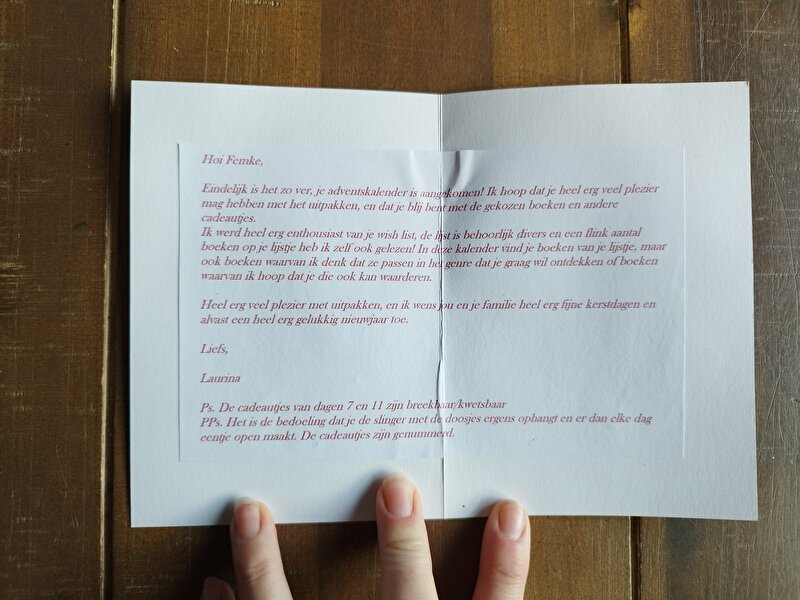 Hoi Femke,
Eindelijk is het zo ver, je adventskalender is aangekomen! Ik hoop dat je heel erg veel plezier
mag hebben met het uitpakken, en dat je blij bent met de gekozen boeken en andere
cadeautjes.
Ik werd heel erg enthousiast van je wish list, de lijst is behoorlijk divers en een flink aantal
boeken op je lijstje heb ik zelf ook gelezen! In deze kalender vind je boeken van je lijstje, maar
ook boeken waarvan ik denk dat ze passen in het genre dat je graag wil ontdekken of boeken
waarvan ik hoop dat je die ook kan waarderen.
Heel erg veel plezier met uitpakken, en ik wens jou en je familie heel erg fijne kerstdagen en
alvast een heel erg gelukkig nieuwjaar toe.
Liefs,
Laurina
Ps. De cadeautjes van dagen 7 en 11 zijn breekbaar/kwetsbaar
PPs. Het is de bedoeling dat je de slinger met de doosjes ergens ophangt en er dan elke dag
eentje open maakt. De cadeautjes zijn genummerd.